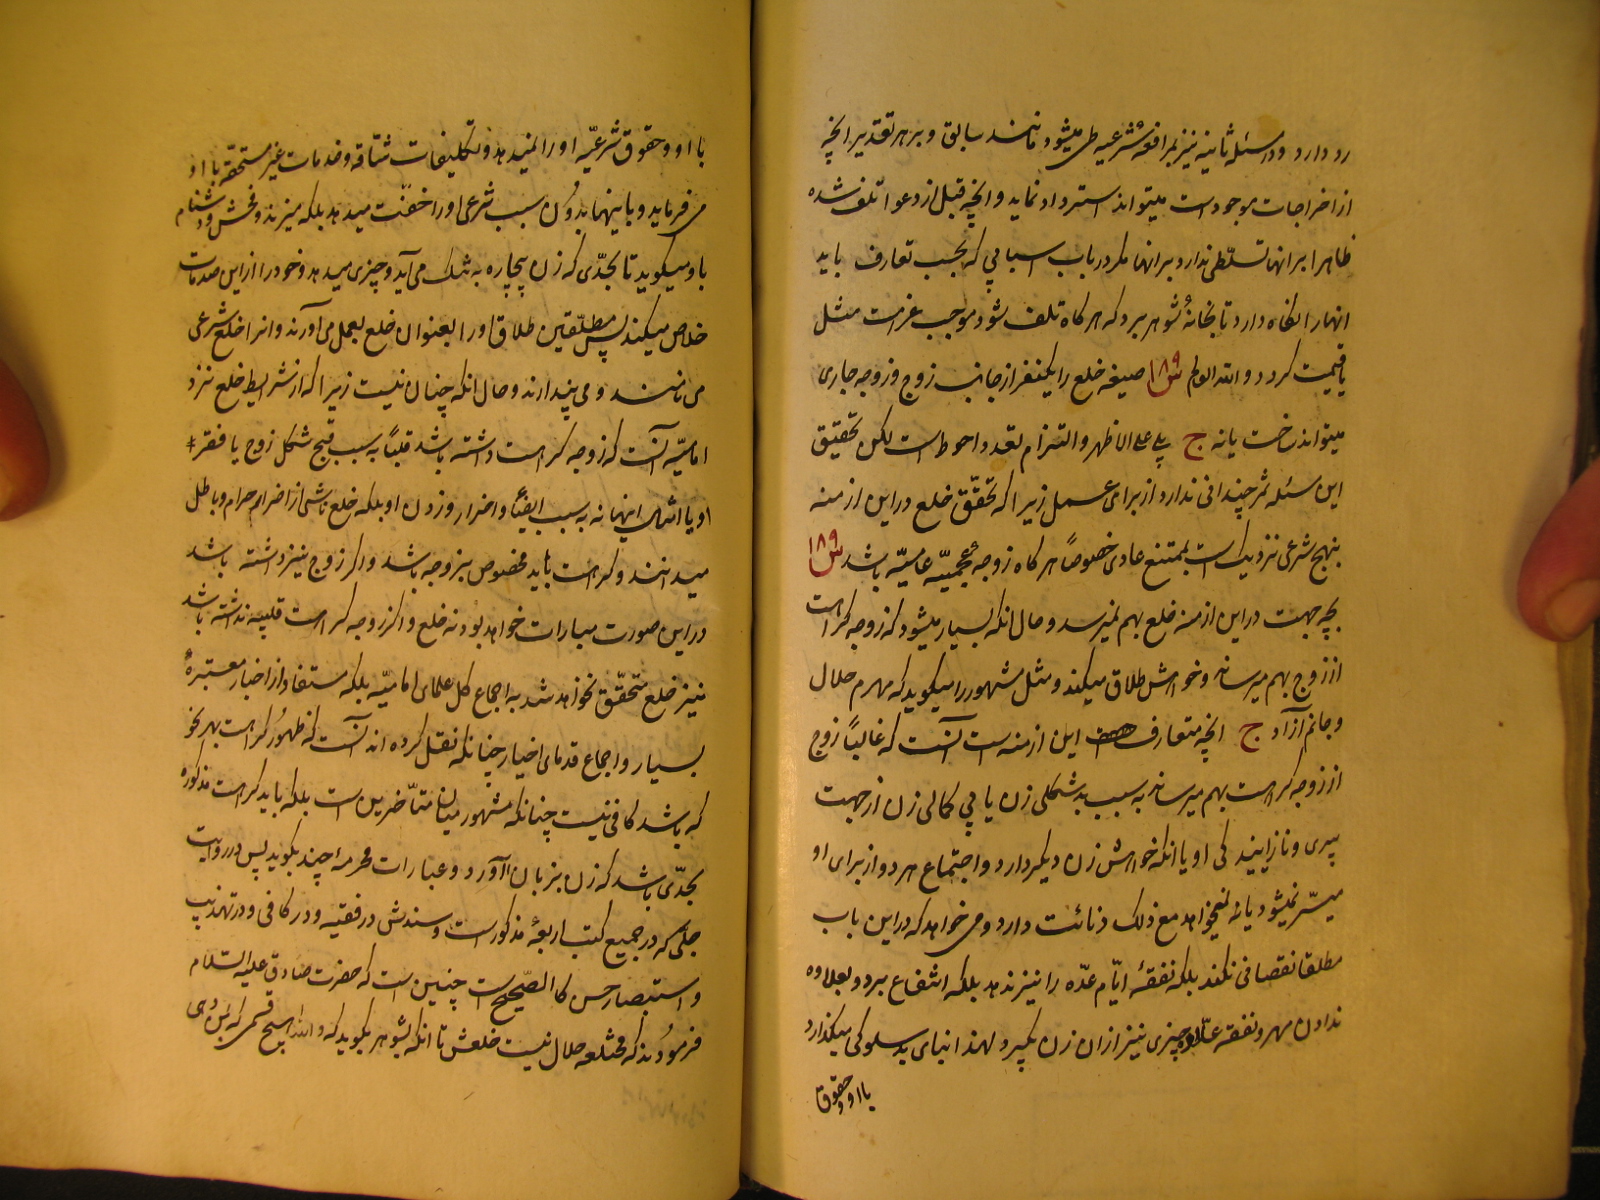 رد دارد و در مسئله ثانیه نیز بمرافعه شرعیه طی میشود مانند سابق و بر هر تقدیر انچه
از اخراجات موجود است میتواند استرداد نماید و انچه قبل از دعوا تلف شده
ظاهرا بر انها تسلّطی ندارد بر انها مکر در باب اسبابی که بحسب تعارف باید
انها را نکاه دارد تا بخانهٔ شوهر برد که هر کاه تلف شود موجب غرامت مثل
یا قیمت کردد و الله العالم س ۱۸۱ صیغه خلع را یکنفر از جانب زوج و زوجه جاری
میتواند ساخت یا نه ج بلی علی الاظهر و التزام تعدد احوط است لکن تحقیق
این مسئله ثمر چندانی ندارد از برای عمل زیرا که تحقّق خلع در این ازمنه
بنهج شرعی نزدیک است بممتنع عادی خصوصاً هر کاه زوجه عجمیّه عامیّه باشد س ۱۸۹
بچه جهت در این ازمنه خلع بهم نمیرسد و حال انکه بسیار میشود که زوجه کراهت
از زوج بهم میرساند و خواهش طلاق میکند و مثل مشهور را میکوید که مهرم حلال
و جانم آزاد ج انچه متعارف این ازمنه است آنست که غالباً زوج
از زوجه کراهت بهم میرساند به سبب بدشکلی زن یا بی کمالی زن از جهت
پیری و نازایندکی او یا انکه خواهش زن دیکر دارد و اجتماع هر دو از برای او
میسّر نمیشود یا نه نمیخواهد مع ذلک دنائت دارد و می خواهد که در این باب
مطلقا نقصانی نکند بلکه نفقهٔ ایّام عدّه را نیز ندهد بلکه انتفاع برد و بعلاوه
ندادن مهر و نفقه عدّه چیزی نیز از ان زن بکیرد لهذا بنای بدسلوکی میکذارد
با او و حقوق
با او و حقوق شرعیّه او را نمیدهد و تکلیفات شاقه و خدمات غیر مستحقّه با او
می فرماید و با اینها بدُون سبب شرعی او را خفّت میدهد بلکه میزند و فحش و دشنام
باو میکوید تا بحدّی که زن بیچاره به تنک می آید و چیزی میدهد و خود را از این صدمات
خلاص میکند پس مطلّقین طلاق او را بعنوان خلع بعمل می آورند و انرا خلع شرعی
می نامند و می پندارند و حال انکه چنان نیست زیرا که از شرایط خلع نزد
امامیّه آنست که زوجه کراهت داشته باشد قلبًا به سبب قبح شکل زوج یا فقر
او یا امثال اینها نه به سبب ایذا و اضرار و زدن او بلکه خلع ناشی از اضرار حرام و باطل
میدانند و کراهت باید مخصوص بزوجه باشد و اکر زوج نیز داشته باشد
در این صورت مبارات خواهد بود نه خلع و اکر زوجه کراهت قلبیه نداشته باشد
نیز خلع متحقّق نخواهد شد به اجماع کل علمای امامیّه بلکه مستفاد از اخبار معتبرهٔ
بسیار و اجماع قدمای اخیار چنانکه نقل کرده اند آنست که ظهورُ کراهت بهر نحو
که باشد کافی نیست چنانکه مشهور میان متأخرین است بلکه باید کراهت مذکوره
بحدّی باشد که زن بزبان آورد و عبارات محرمهٔ چند بکوید پس در روایت
حلبی که در جمیع کتب اربعهٔ مذکور است و سندش در فقیه و در کافی و در تهذیب
و استبصار حسن کالصّحیح است چنین است که حضرت صادق علیه السّلام
فرمودند که مختلعه حلال نیست خلعش تا انکه بشوهر بکوید که والله هیچ قسمی که